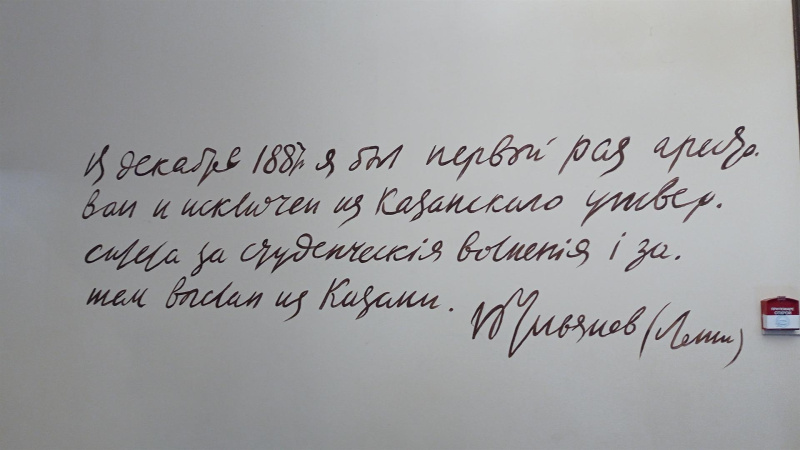 В декабре 1887 я был первый раз аресто-
ван и исключен из Казанского универ-
ситета за студенческія волненія і за-
тем выслан из Казани.
В Ульянов (Ленин)